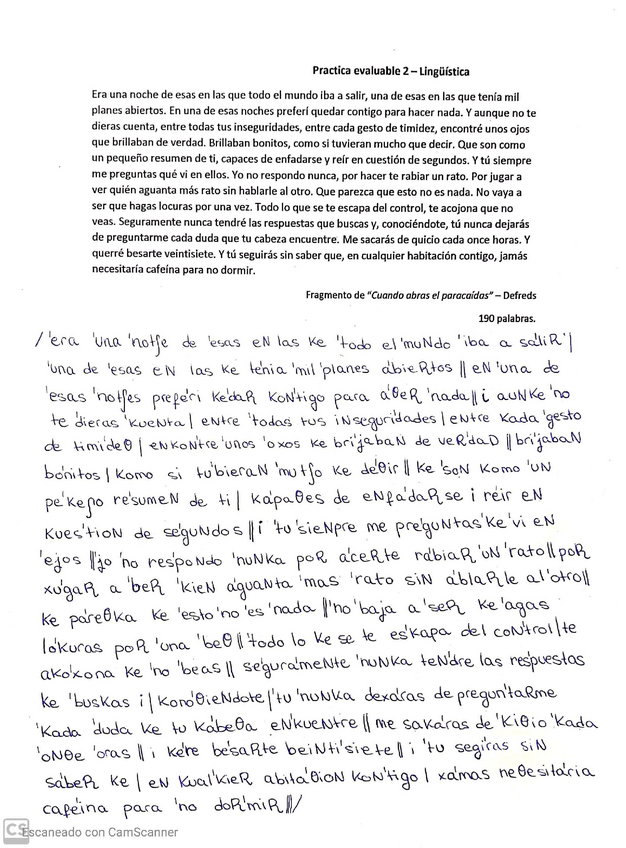 Practica evaluable 2 – Lingüística
Era una noche de esas en las que todo el mundo iba a salir, una de esas en las que tenía mil
planes abiertos. En una de esas noches preferí quedar contigo para hacer nada. Y aunque no te
dieras cuenta, entre todas tus inseguridades, entre cada gesto de timidez, encontré unos ojos
que brillaban de verdad. Brillaban bonitos, como si tuvieran mucho que decir. Que son como
un pequeño resumen de ti, capaces de enfadarse y reír en cuestión de segundos. Y tú siempre
me preguntas qué vi en ellos. Yo no respondo nunca, por hacer te rabiar un rato. Por jugar a
ver quién aguanta más rato sin hablarle al otro. Que parezca que esto no es nada. No vaya a
ser que hagas locuras por una vez. Todo lo que se te escapa del control, te acojona que no
veas. Seguramente nunca tendré las respuestas que buscas y, conociéndote, tú nunca dejarás
de preguntarme cada duda que tu cabeza encuentre. Me sacarás de quicio cada once horas. Y
querré besarte veintisiete. Y tú seguirás sin saber que, en cualquier habitación contigo, jamás
necesitaría cafeína para no dormir.
Fragmento de “Cuando abras el paracaídas” – Defreds
190 palabras.
/ˈeɾa ˈuna ˈnotʃe de ˈesas eN las ke ˈtodo el ˈmuNdo ˈiba a saˈliR|
ˈuna de ˈesas eN las ke teˈnia ˈmil ˈplanes aˈbieRtos || eN ˈuna de
ˈesas ˈnotʃes prefeˈri keˈdaR koNˈtigo para aˈθeR ˈnada || i auNke ˈno
te ˈdieras ˈkueNta | eNtre ˈtodas tus iNseguriˈdades | eNtre kada ˈgesto
de timiˈdeθ | eNkoNˈtre ˈunos ˈoxos ke briˈjabaN de veRˈdaD || briˈjabaN
boˈnitos | komo si tuˈbieraN ˈmutʃo ke deˈθir || ke ˈsoN komo ˈuN
peˈkeɲo reˈsumeN de ti | kaˈpaθes de eNfaˈdaRse i reˈir eN
kuesˈtioN de seˈguNdos || i ˈtu ˈsieNpre me preˈguNtas ˈke ˈvi eN
ˈejos || ˈjo ˈno resˈpoNdo ˈnuNka poR aˈceRte raˈbiaR ˈuN ˈrato || poR
xuˈgaR a ˈbeR ˈkieN aˈguaNta ˈmas ˈrato siN aˈblaRle al ˈotro ||
ke paˈreθka ke ˈesto ˈno ˈes ˈnada || ˈno ˈbaja a ˈseR ke ˈagas
loˈkuras poR ˈuna ˈbeθ || ˈtodo lo ke se te esˈkapa del coNˈtrol | te
akoˈxona ke ˈno ˈbeas || seguraˈmeNte ˈnuNka teNˈdre las resˈpuestas
ke ˈbuskas i | konoˈθieNdote | ˈtu ˈnuNka dexaˈras de preguNˈtaRme
ˈkada ˈduda ke tu kaˈbeθa eNˈkueNtre || me sakaˈras de ˈkiθio ˈkada
ˈoNθe ˈoras || i keˈre beˈsaRte beiNtiˈsiete || i ˈtu segiˈras siN
saˈbeR ke | eN kualˈkieR abitaˈθioN koNˈtigo | xaˈmas neθesitaˈria
cafeˈina para ˈno doRˈmiR ||/
CS Escaneado con CamScanner